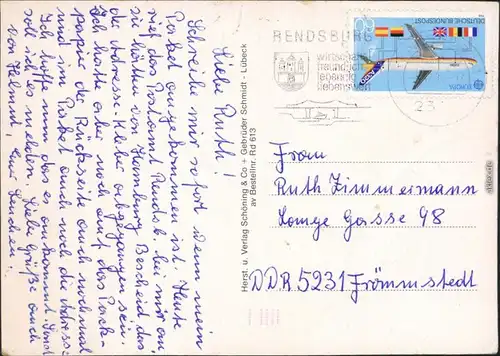 Liebe Ruth!
Schreibe mir sofort wenn mein
Paket angekommen ist. Heute
rief das Postamt Rendsb. bei mir an,
sie hätten von Hamburg Bescheid das
die Adresse-Kleber abgegangen sei.
Ich hatte aber noch auf das Pack-
papier die Rückseite auch nochmal
und im Paket auch noch die Adresse.
Ich hoffe nun das es ankommt. Sonst
soll ich es melden. Liebe Grüße auch
von Helmut, Euer
Herst. u. Verlag Schöning & Co + Gebrüder Schmidt - Lübeck
av Bestellnr. Rd 613
RENDSBURG
23
DEUTSCHE BUNDESPOST
EUROPA
Frau
Ruth Zimmermann
Lange Gasse 98
DDR 5231 Frömmstedt